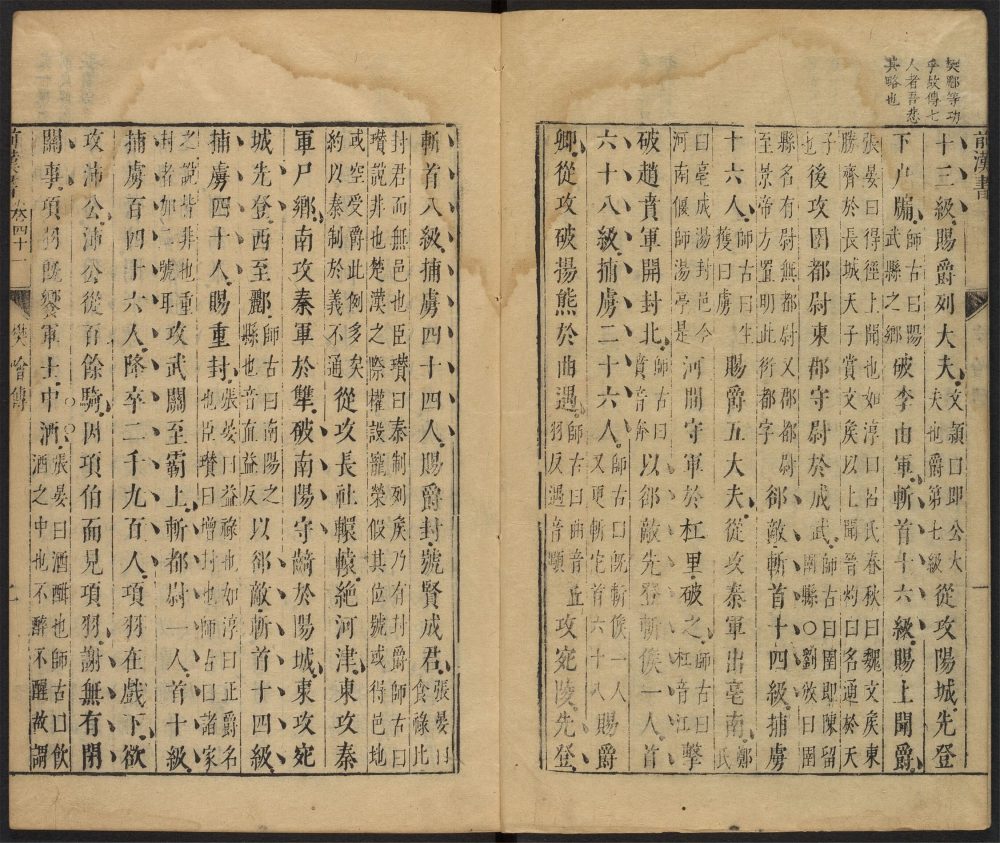 樊酈等功
故傳七
人者吾悲
其略也
前漢書
十三級賜爵列大夫文穎曰即公大夫也爵第七級從攻陽城先登
下戶牖師古曰陽武縣之鄉破李由軍斬首十六級賜上聞爵
張晏曰得徑上聞也如淳曰呂氏春秋曰魏文侯東
勝齊於長城天子賞文侯以上聞晉灼曰名通於天
子也後攻圉都尉東郡守尉於成武師古曰圉即陳留圉縣○劉攽曰圉
縣名有尉無都尉又郡都尉至景帝方置明此衍都字卻敵斬首十四級捕虜
十六人師古曰生獲曰虜賜爵五大夫從攻秦軍出亳南鄭氏
曰亳成湯封邑今河南偃師湯亭是河間守軍於杠里破之師古曰杠音江擊
破趙賁軍開封北師古曰賁音奔以卻敵先登斬侯一人首
六十八級捕虜二十六人師古曰既斬侯一人又更斬它首六十八賜爵
卿從攻破揚熊於曲遇師古曰曲音丘羽反遇音顒攻宛陵先登
斬首八級捕虜四十四人賜爵封號賢成君張晏曰食祿比
封君而無邑也臣瓚曰秦制列侯乃有封爵師古曰
瓚說非也楚漢之際權設寵榮假其位號或得邑地
或空受爵此例多矣約以秦制於義不通從攻長社轘轅絕河津東攻秦
軍尸鄉南攻秦軍於犨破南陽守齮於陽城東攻宛
城先登西至酈師古曰南陽之縣也音直益反以卻敵斬首十四級
捕虜四十人賜重封張晏曰益祿也如淳曰正爵名也臣瓚曰增封也師古曰諸家
之說皆非也重封者加二號耳攻武關至霸上斬都尉一人首十級
捕虜百四十六人降卒二千九百人項羽在戲下欲
攻沛公沛公從百餘騎因項伯而見項羽謝無有閉
關事項羽既饗軍士中酒張晏曰酒酣也師古曰飲酒之中也不醉不醒故謂
前漢書 卷四十一 樊噲傳